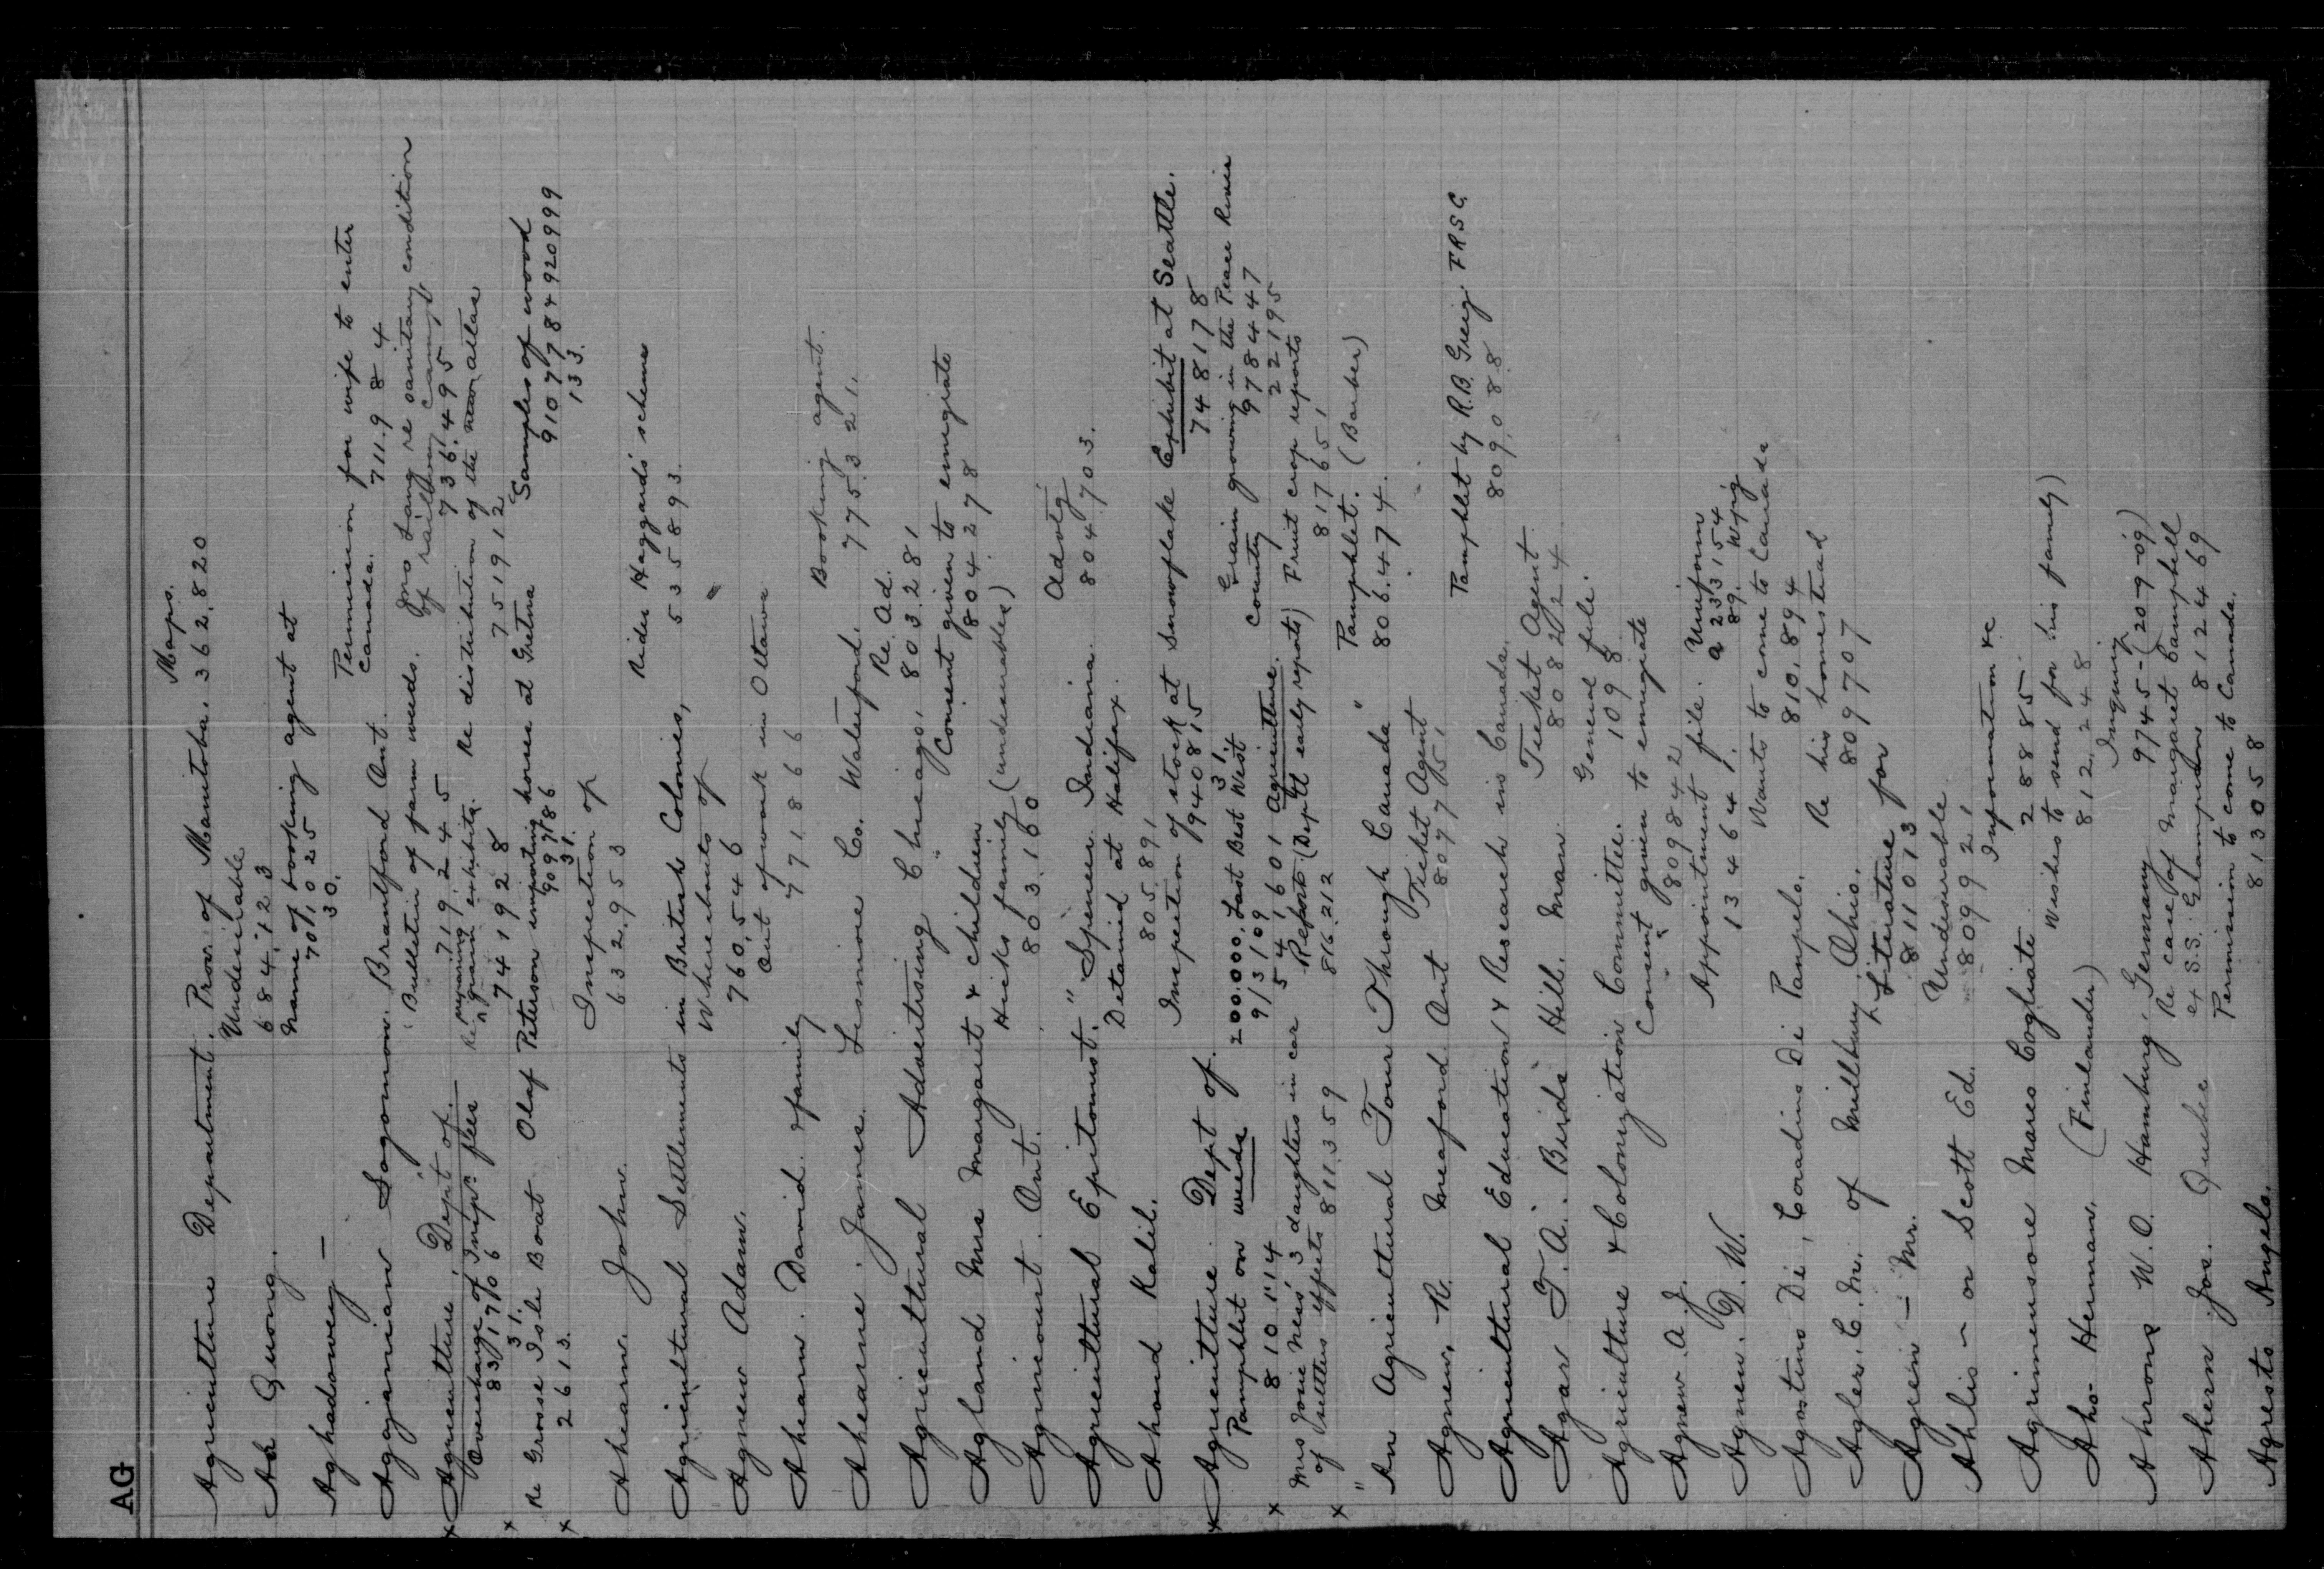 AG
Maps.
Agriculture Department. Prov. of Manitoba. 362.820
Undesirable
Ah Quong. 684,123
Name of booking agent at
Aghadowey — 701,025
30.
Permission for wife to enter
Canada. 711.984
Aggajanian Sogomon. Brantford Ont.
"Bulletin of farm weeds. Jno Lang re sanitary condition
of railway camps
x Agriculture, Dept of. 719,245 736,495
Overcharge of Insp. fees Re preparing exhibits Re distribution of the new atlas
n grain
831706 741928 751912
31.
x Re Grosse Isle Boat Olaf Peterson importing horses at Gretna "Samples of wood
2613. 909786 910777 849 920999
31. 133.
x
Inspection of
Ahearn. John. 632,953
Rider Haggards scheme
Agricultural Settlements in British Colonies, 535893.
Whereabouts of
Agnew Adam. 760,546
Out of work in Ottawa
Ahearn. David & family 771866
Booking agent.
Ahearne. James. Lismore Co. Waterford. 775321.
Re. Ad.
Agricultural Advertising Chicago, 803,281
Consent given to emigrate
Agland Mrs Margaret & children 804.278
Hicks family (undesirables)
Agincourt. Ont. 803,160
Advtg.
"Agricultural Epitomist." Spencer Indiana. 804.703.
Detained at Halifax.
Ahoud Kalil. 805,891
Inspection of stock at Snowflake Exhibit at Seattle.
x Agriculture. Dept of. 940815 748178
31.
Pamphlet on weeds 200.000. Last Best West Grain growing in the Peace River
810114 913109 County 978447
x 541601 Agriculture. 22195
Mrs Jone Nees' 3 daughters in car Report (Deptl early reports) Fruit crop reports
of settlers effects 811,359 816.212 817651
x
Pamphlet. (Barber)
"An Agricultural Tour Through Canada" 806.474.
Ticket Agent
Agnew, R. Meaford Ont 807751
Pamphlet by R.B. Greig. FRSC
Agricultural Education & Research in Canada. 809,088
Ticket Agent
Agar T.A. Birds Hill. Man. 808224
General file.
Agriculture & Colonization Committee. 1098
Consent given to emigrate
Agnew. A.J. " 809842
Appointment file. Uniform
Agnew. D.W. 134641. a 233154
89. Wpg
Wants to come to Canada
Agostino Di, Coradino Di Panpelo. 810,894
Re his homestead
Agler. C.M. of Millbury, Ohio. 809707
Literature for
Agrein — Mr. 811013
Undesirable
Ahlis — or Scott Ed. 809921
Information re
Agrimensore Mares Cogliate 28885.
Wishes to send for his family)
Aho- Herman. (Finlander) 812,248
Inquiry
Ahrons W.O. Hamburg, Germany 9745-(20-9-09)
Re case of Margaret Campbell
Ahern Jos. Quebec ex S.S. Grampian 812469
Permission to come to Canada.
Agresto Angelo. 813058